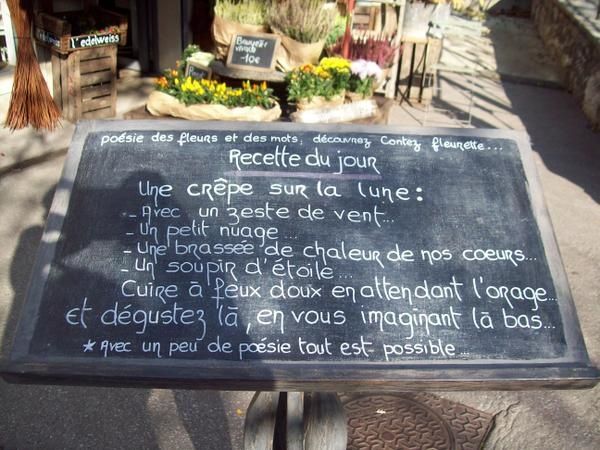 l'edelweiss
Bruyère
vivace
-10€
poésie des fleurs et des mots, découvrez Contez fleurette...
Recette du jour
Une crêpe sur la lune :
- Avec un zeste de vent...
- Un petit nuage...
- Une brassée de chaleur de nos coeurs...
- Un soupir d'étoile...
Cuire à feux doux en attendant l'orage...
et dégustez là, en vous imaginant là bas...
* Avec un peu de poésie tout est possible...